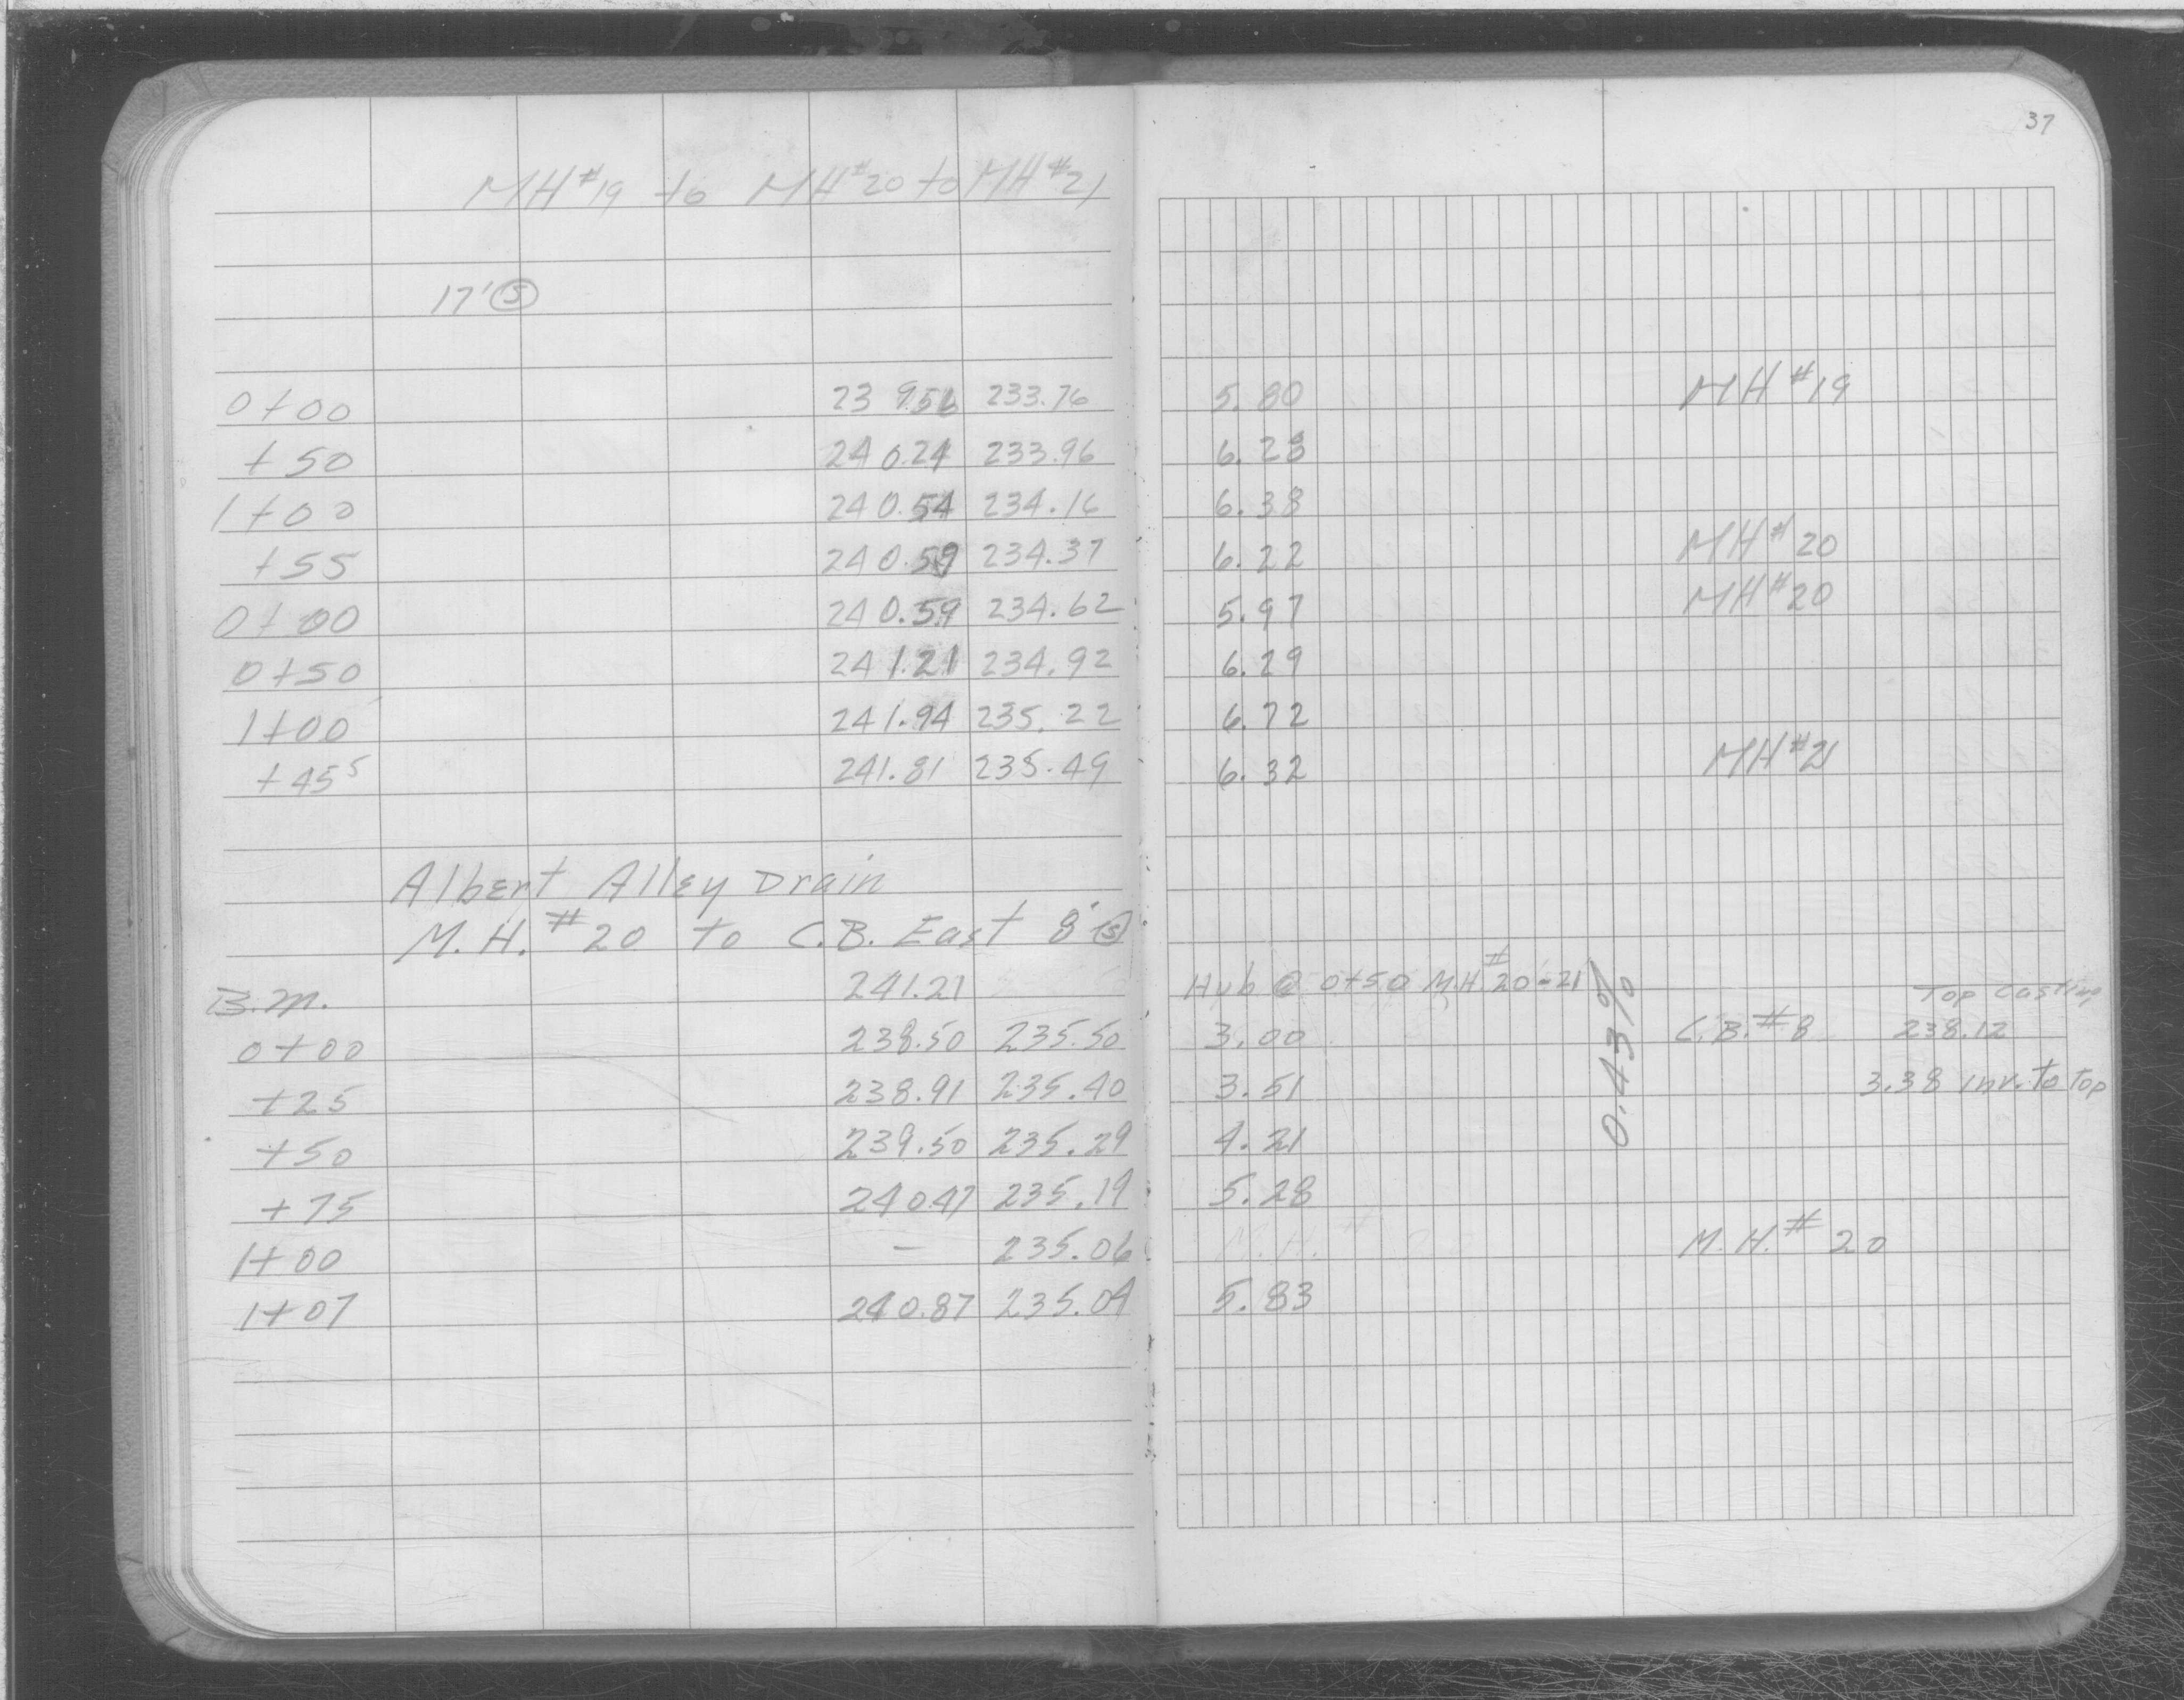 37
MH #19 to MH #20 to MH #21
17' S
0+00 239.56 233.76 5.80 MH #19
+50 240.24 233.96 6.28
1+00 240.54 234.16 6.38
+55 240.59 234.37 6.22 MH #20
0+00 240.59 234.62 5.97 MH #20
0+50 241.21 234.92 6.29
1+00 241.94 235.22 6.72
+45⁵ 241.81 235.49 6.32 MH #21
Albert Alley Drain
M.H. #20 to C.B. East 8' S
B.M. 241.21 Hub @ 0+50 M.H #20-21 Top Casting
0+00 238.50 235.50 3.00 C.B. #8 238.12
+25 238.91 235.40 3.51 3.38 inv. to top
0.43%
+50 239.50 235.29 4.21
+75 240.47 235.19 5.28
1+00 — 235.06 M.H. # M.H. #20
1+07 240.87 235.04 5.83